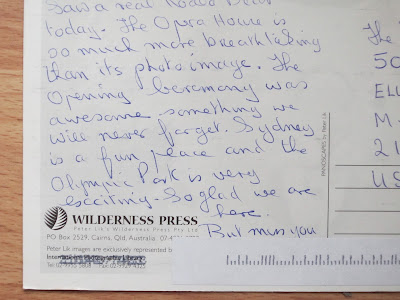 saw a real Koala Bear
today. The Opera House is
so much more breathtaking
than its photo image. The
Opening Ceramony was
awesome something we
will never forget. Sydney
is a fun place and the
Olympic Park is very
exciting. So glad we are
here.
But miss you
WILDERNESS PRESS
Peter Lik's Wilderness Press Pty Ltd
PO Box 2529, Cairns, Qld, Australia 07-4
Peter Lik images are exclusively represented b
PANOSCAPES by Peter Lik
The
50
ELL
M
21
US